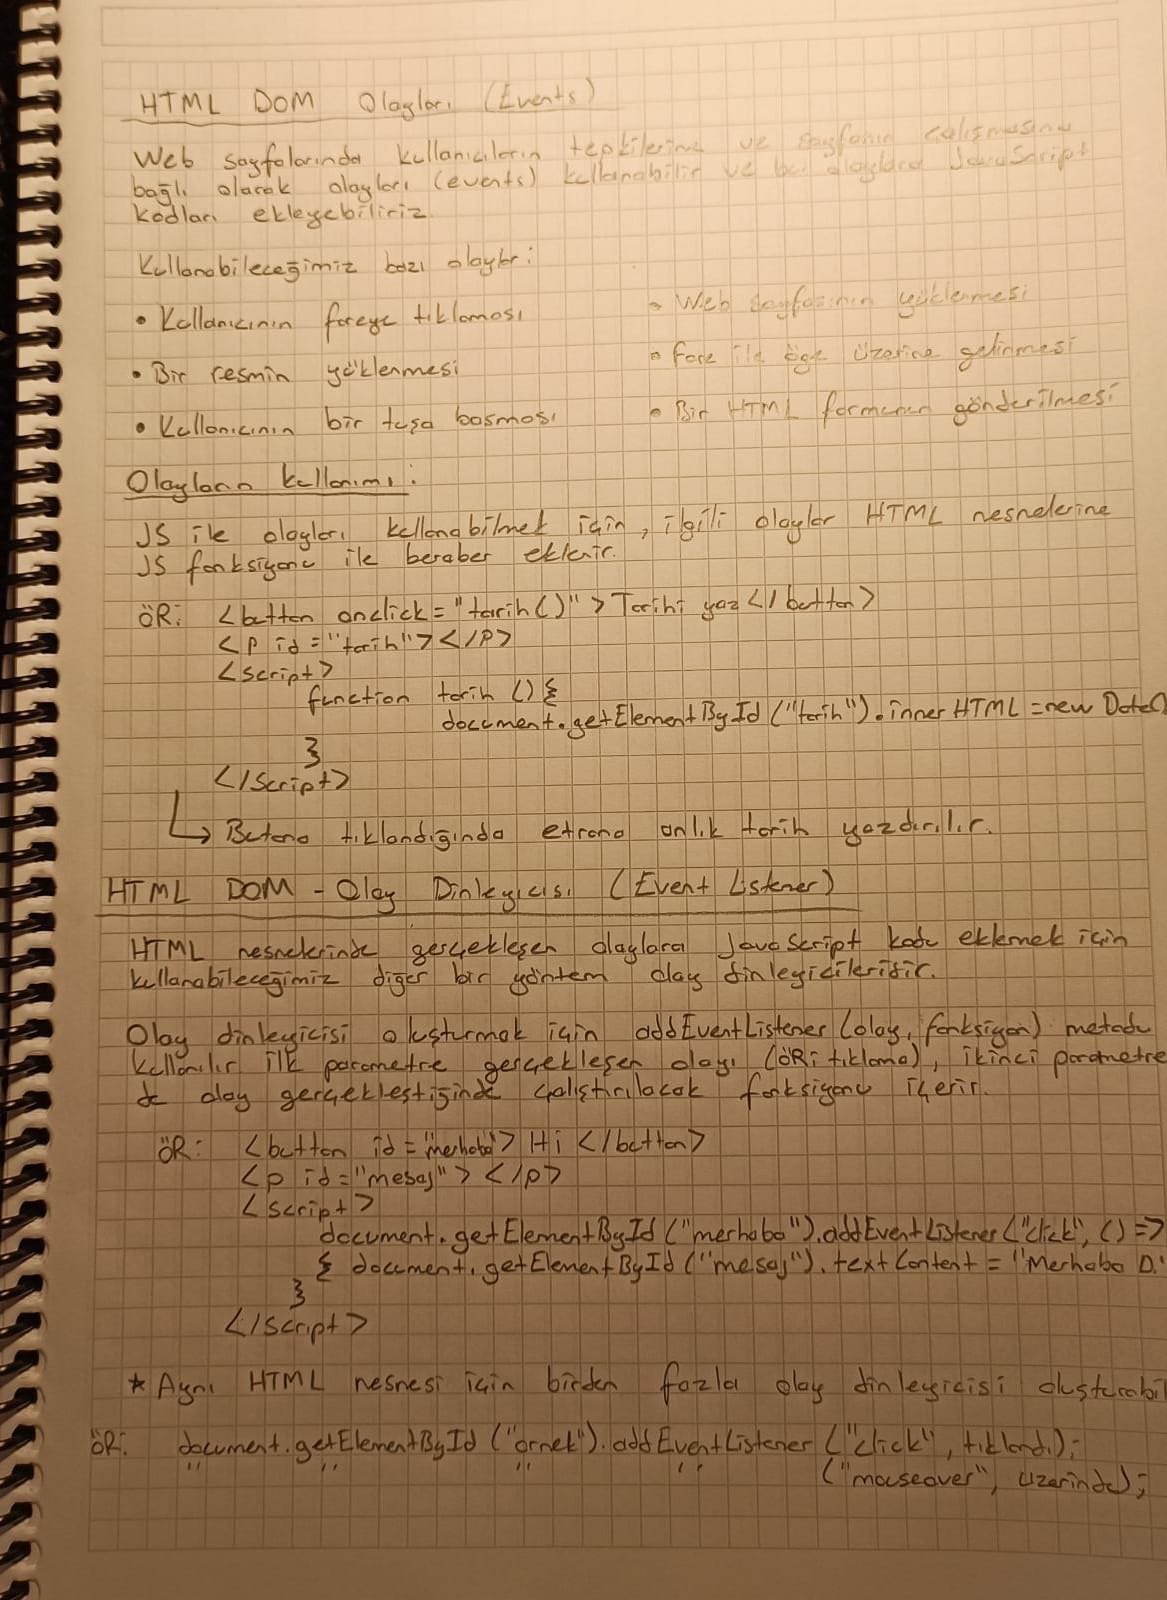 HTML DOM Olayları (Events)
Web sayfalarında kullanıcıların tepkilerine ve sayfanın çalışmasına
bağlı olarak olayları (events) kullanabilir ve bu olaylara JavaScript
kodları ekleyebiliriz.
Kullanabileceğimiz bazı olaylar:
• Kullanıcının fareye tıklaması
• Web sayfasının yüklenmesi
• Bir resmin yüklenmesi
• Fare ile öge üzerine gelinmesi
• Kullanıcının bir tuşa basması
• Bir HTML formunun gönderilmesi
Olayların kullanımı:
JS ile olayları kullanabilmek için, ilgili olaylar HTML nesnelerine
JS fonksiyonu ile beraber eklenir.
ÖR: <button onclick="tarih()">Tarihi yaz</button>
<p id="tarih"></p>
<script>
function tarih () {
document.getElementById("tarih").innerHTML=new Date()
}
</script>
↳ Butona tıklandığında ekrana anlık tarih yazdırılır.
HTML DOM - Olay Dinleyicisi (Event Listener)
HTML nesnelerinde gerçekleşen olaylara JavaScript kodu eklemek için
kullanabileceğimiz diğer bir yöntem olay dinleyicileridir.
Olay dinleyicisi oluşturmak için addEventListener(olay, fonksiyon) metodu
kullanılır ilk parametre gerçekleşen olayı (ÖR: tıklama), ikinci parametre
de olay gerçekleştiğinde çalıştırılacak fonksiyonu içerir.
ÖR: <button id="merhaba"> Hi </button>
<p id="mesaj"></p>
<script>
document.getElementById("merhaba").addEventListener("click", () =>
{ document.getElementById("mesaj").textContent = "Merhaba D.
}
</script>
* Aynı HTML nesnesi için birden fazla olay dinleyicisi oluşturabil
ÖR: document.getElementById("ornek").addEventListener("click", tıklandı);
" " " " ("mouseover", üzerinde);